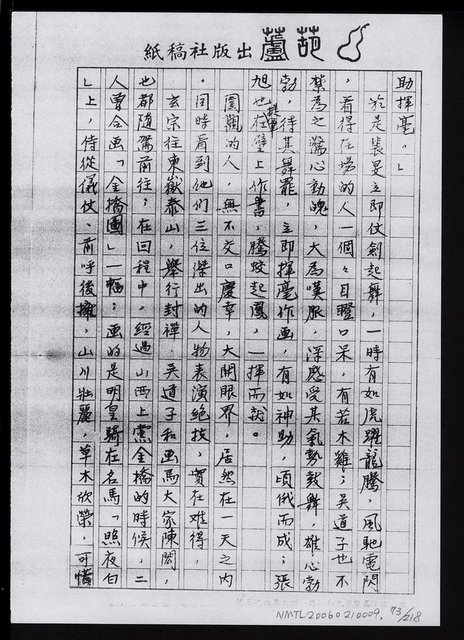 葫蘆出版社稿紙
助揮毫。」
於是裴旻立即仗劍起舞,一時有如虎躍龍騰,風馳電閃
,看得在場的人一個々目瞪口呆,有若木雞;吳道子也不
禁為之驚心動魄,大為嘆服,深感受其氣勢鼓舞,雄心勃
勃,待其舞罷,立即揮毫作畫,有如神助,頃俄而成;張
旭也在壁上作書,騰蛟起鳳,一揮而就。
圍觀的人,無不交口慶幸,大開眼界,居然在一天之內
,同時看到他們三位傑出的人物表演絕技,實在難得。
玄宗往東嶽泰山,舉行封禪,吳道子和画馬大家陳閎,
也都隨駕前往;在回程中,經過山西上黨金橋的時候,二
人曾合画「金橋圖」一幅;画的是明皇騎在名馬「照夜白
」上,侍從儀仗,前呼後擁,山川壯麗,草木欣榮,可惜
NMTL20060210009. 73/218